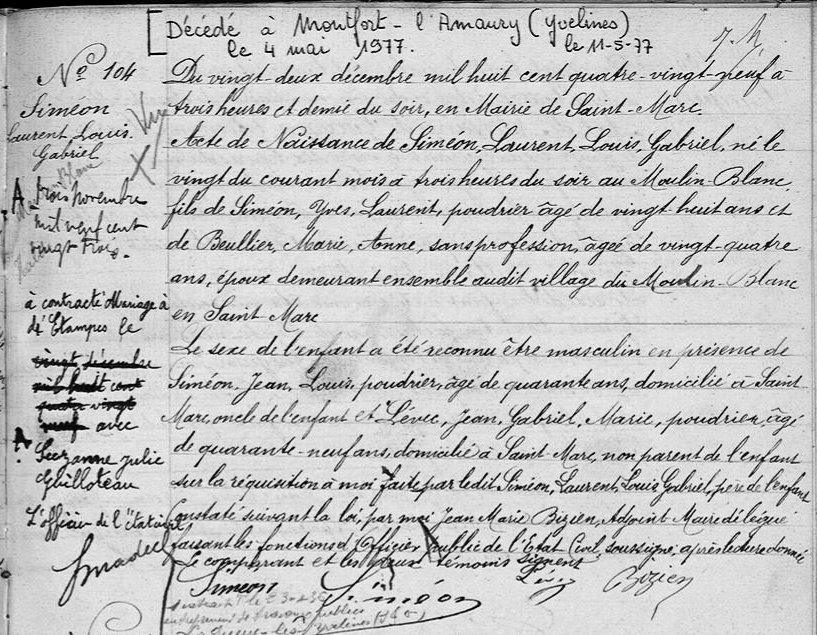 Décédé à Montfort-l'Amaury (Yvelines)
le 4 mai 1977. le 11-5-77
N° 104
Siméon
Laurent Louis
Gabriel
A trois novembre
mil neuf cent
vingt trois.
à contracté Mariage à
d'Etampes le
vingt décembre
mil huit cent
quatre vingt
neuf avec
Suzanne Julie
Guilloteau
L'officier de l'état civil,
Du vingt-deux décembre mil huit cent quatre-vingt-neuf à
trois heures et demie du soir, en Mairie de Saint-Marc.
Acte de Naissance de Siméon, Laurent, Louis, Gabriel, né le
vingt du courant mois à trois heures du soir au Moulin-Blanc,
fils de Siméon, Yves, Laurent, poudrier âgé de vingt-huit ans et
de Beullier, Marie, Anne, sans profession, âgée de vingt-quatre
ans, époux demeurant ensemble audit village du Moulin-Blanc
en Saint-Marc
Le sexe de l'enfant a été reconnu être masculin en présence de
Siméon, Jean, Louis, poudrier, âgé de quarante ans, domicilié à Saint-
Marc, oncle de l'enfant et Lévec, Jean, Gabriel, Marie, poudrier, âgé
de quarante-neuf ans, domicilié à Saint-Marc, non parent de l'enfant
sur la réquisition à moi faite par ledit Siméon, Laurent, Louis, Gabriel, père de l'enfant
Constaté suivant la loi, par moi Jean Marie Bizien, Adjoint Maire délégué
faisant les fonctions d'Officier public de l'Etat Civil, soussigné, après lecture donnée
Le comparant et les deux témoins signent
Siméon Siméon Bizien